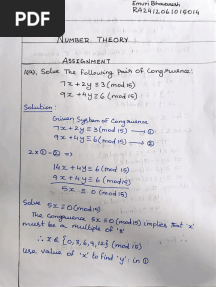 PDF
Emuri Bhavaesh
RA2412061015014
NUMBER THEORY
ASSIGNMENT
1(a), Solve The following pair of Congruence:
7x + 2y ≡ 3 (mod 15)
9x + 4y ≡ 6 (mod 15)
Solution:
Given System of Congruence
7x + 2y ≡ 3 (mod 15) → ①
9x + 4y ≡ 6 (mod 15) → ②
2 × ① - ② ⇒
14x + 4y ≡ 6 (mod 15)
9x + 4y ≡ 6 (mod 15)
5x ≡ 0 (mod 15)
Solve 5x ≡ 0 (mod 15)
The Congruence 5x ≡ 0 (mod 15) implies that 'x'
must be a multiple of '3'
∴ x ∈ {0, 3, 6, 9, 12} (mod 15)
Use value of 'x' to find 'y' in ①